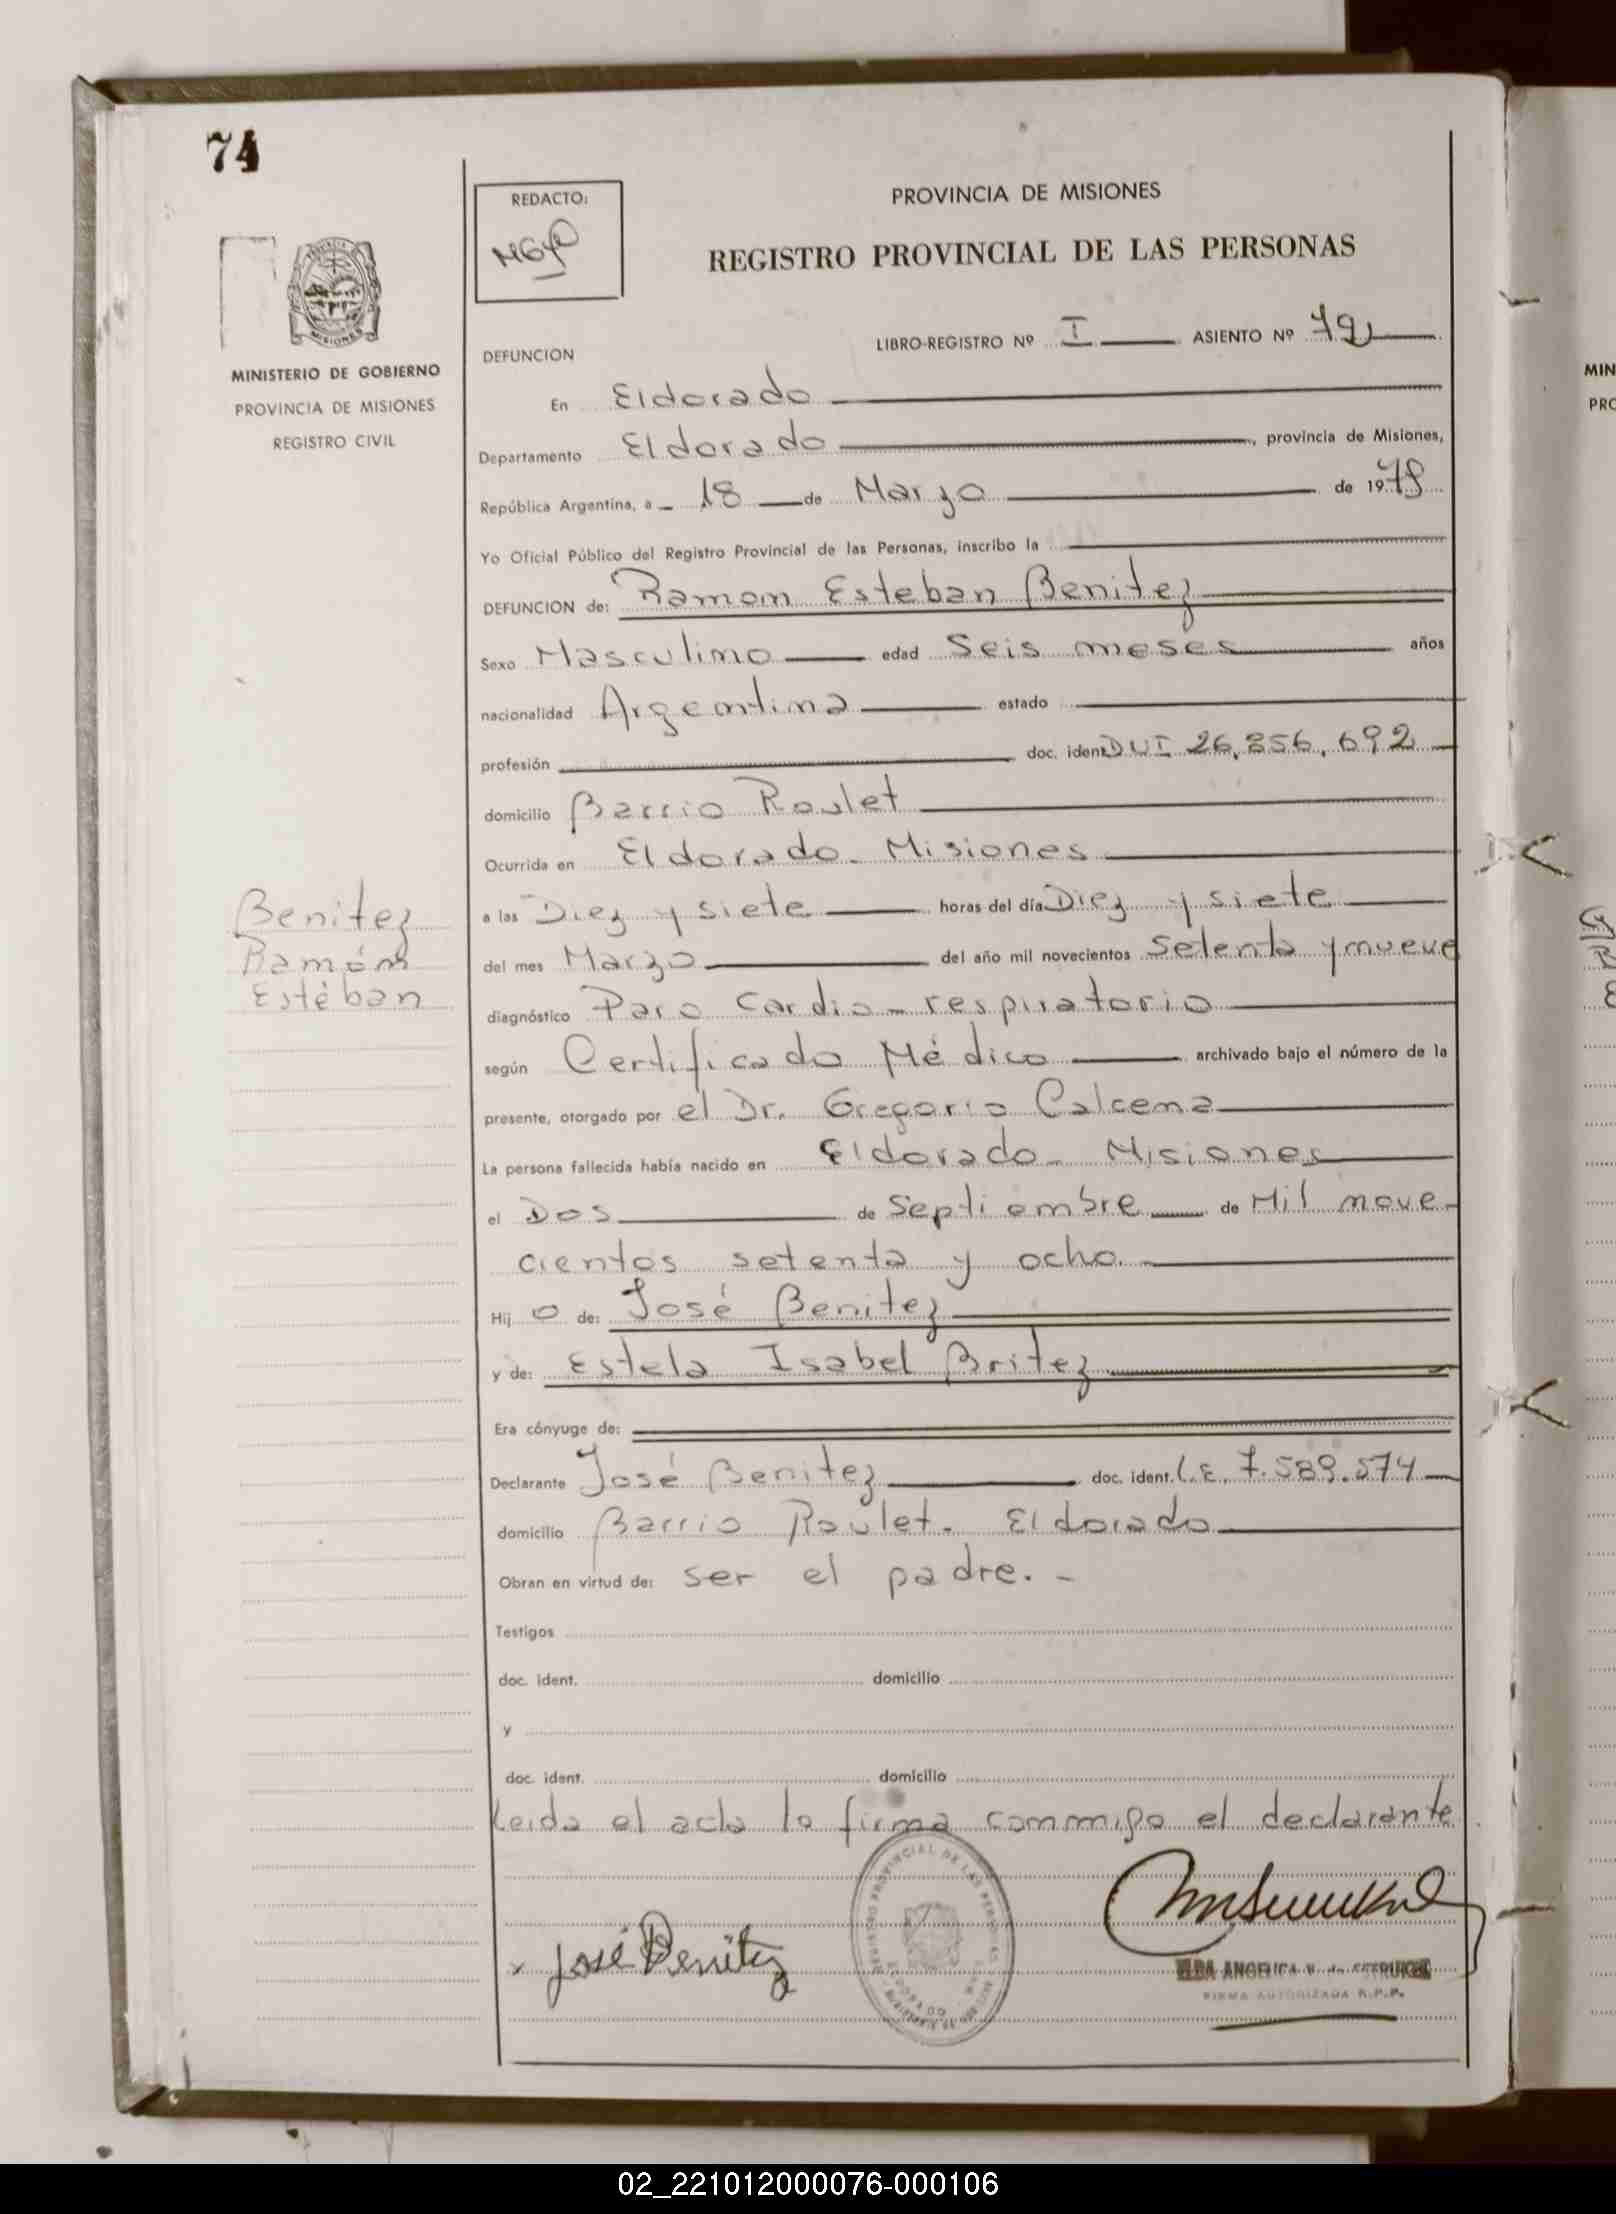 74
REDACTO:
PROVINCIA DE MISIONES
REGISTRO PROVINCIAL DE LAS PERSONAS
MISIONES
MINISTERIO DE GOBIERNO
PROVINCIA DE MISIONES
REGISTRO CIVIL
LIBRO-REGISTRO Nº I ASIENTO Nº
DEFUNCION
En Eldorado
Departamento Eldorado, provincia de Misiones,
República Argentina, a 18 de Marzo de 1979
Yo Oficial Público del Registro Provincial de las Personas, inscribo la
DEFUNCION de: Ramon Esteban Benitez
Sexo Masculino edad Seis meses años
nacionalidad Argentina estado
profesión doc. ident DUI 26,856,692
domicilio Barrio Roulet
Ocurrida en Eldorado - Misiones
a las Diez y siete horas del día Diez y siete
del mes Marzo del año mil novecientos setenta y nueve
diagnóstico Paro cardio-respiratorio
según Certificado Médico archivado bajo el número de la
presente, otorgado por el Dr. Gregorio Calcena
La persona fallecida había nacido en Eldorado - Misiones
el Dos de Septiembre de Mil nove-
cientos setenta y ocho.
Hij o de: José Benitez
y de: Estela Isabel Britez
Era cónyuge de:
Declarante José Benitez doc. ident. L.E. 7.589.574
domicilio Barrio Roulet. Eldorado
Obran en virtud de: ser el padre. -
Testigos
doc. ident. domicilio
y
doc. ident. domicilio
Leida el acta la firma conmigo el declarante
Benitez
Ramón
Estéban
x José Benitez
REGISTRO PROVINCIAL DE LAS PERSONAS
ELDORADO
ELBA ANGELICA
FIRMA AUTORIZADA R.P.P.
MIN
PRO
02_221012000076-000106